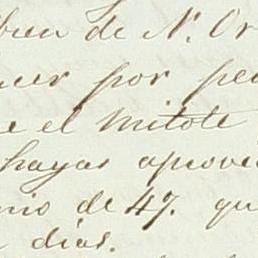 de N. Or
por
e el Mitote
hayas aprove
nio de 47. qu
dias.